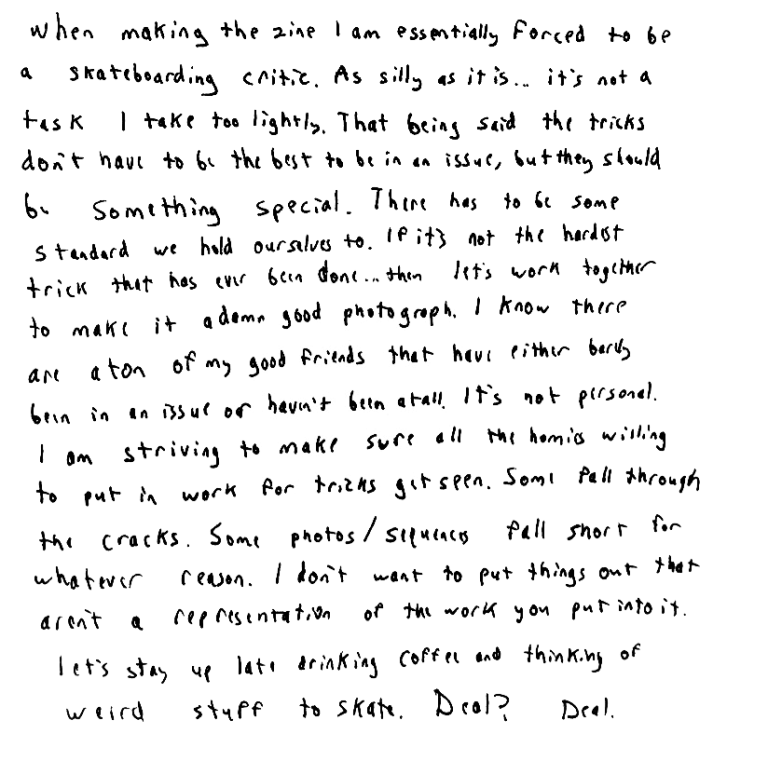 when making the zine I am essentially forced to be
a skateboarding critic. As silly as it is... it's not a
task I take too lightly. That being said the tricks
don't have to be the best to be in an issue, but they should
be something special. There has to be some
standard we hold ourselves to. If it's not the hardest
trick that has ever been done... then let's work together
to make it a damn good photograph. I know there
are a ton of my good friends that have either barely
been in an issue or haven't been at all. It's not personal.
I am striving to make sure all the homies willing
to put in work for tricks get seen. Some fall through
the cracks. Some photos/sequences fall short for
whatever reason. I don't want to put things out that
aren't a representation of the work you put into it.
let's stay up late drinking coffee and thinking of
weird stuff to skate. Deal? Deal.